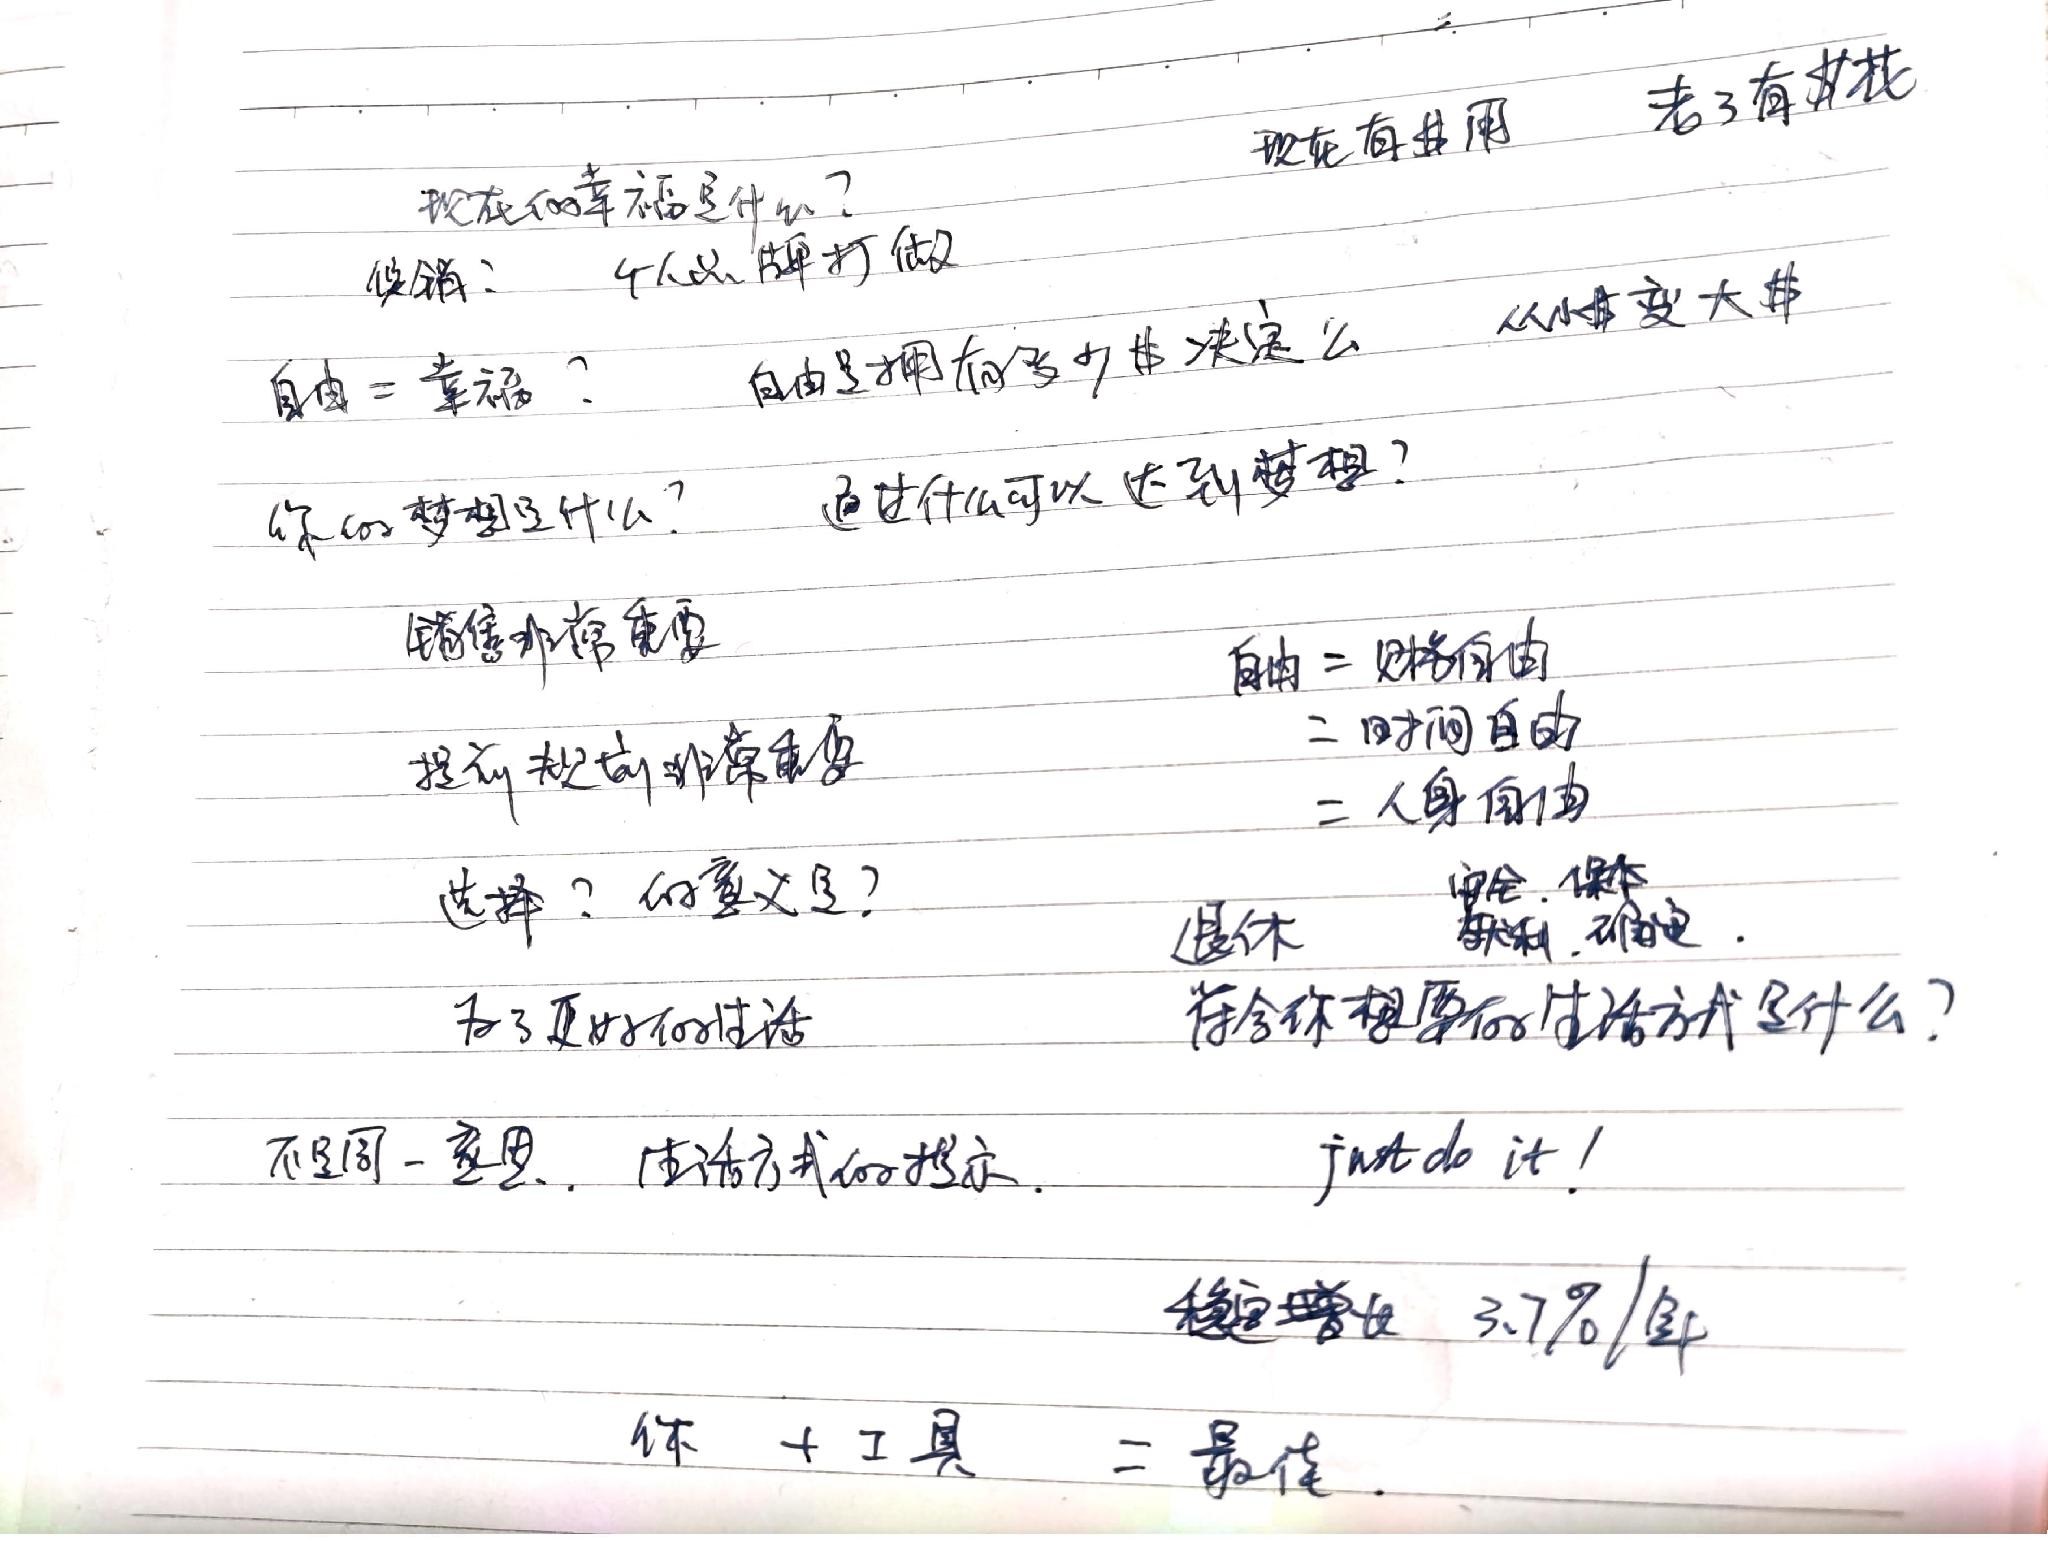 现在有$用 老了有$花
现在的幸福是什么?
促销: 个人品牌打做
自由 = 幸福? 自由是拥有多少$决定么 从小$变大$
你的梦想是什么? 通过什么可以达到梦想?
销售非常重要
自由 = 财务自由
提前规划非常重要 = 时间自由
= 人身自由
选择? 的意义是? 安全. 保本
退休 获利. 确定.
为了更好的生活 符合你想要的生活方式是什么?
不是同一意思. 生活方式的提示. just do it!
稳定增长 3.7%/年
你 + 工具 = 最佳.